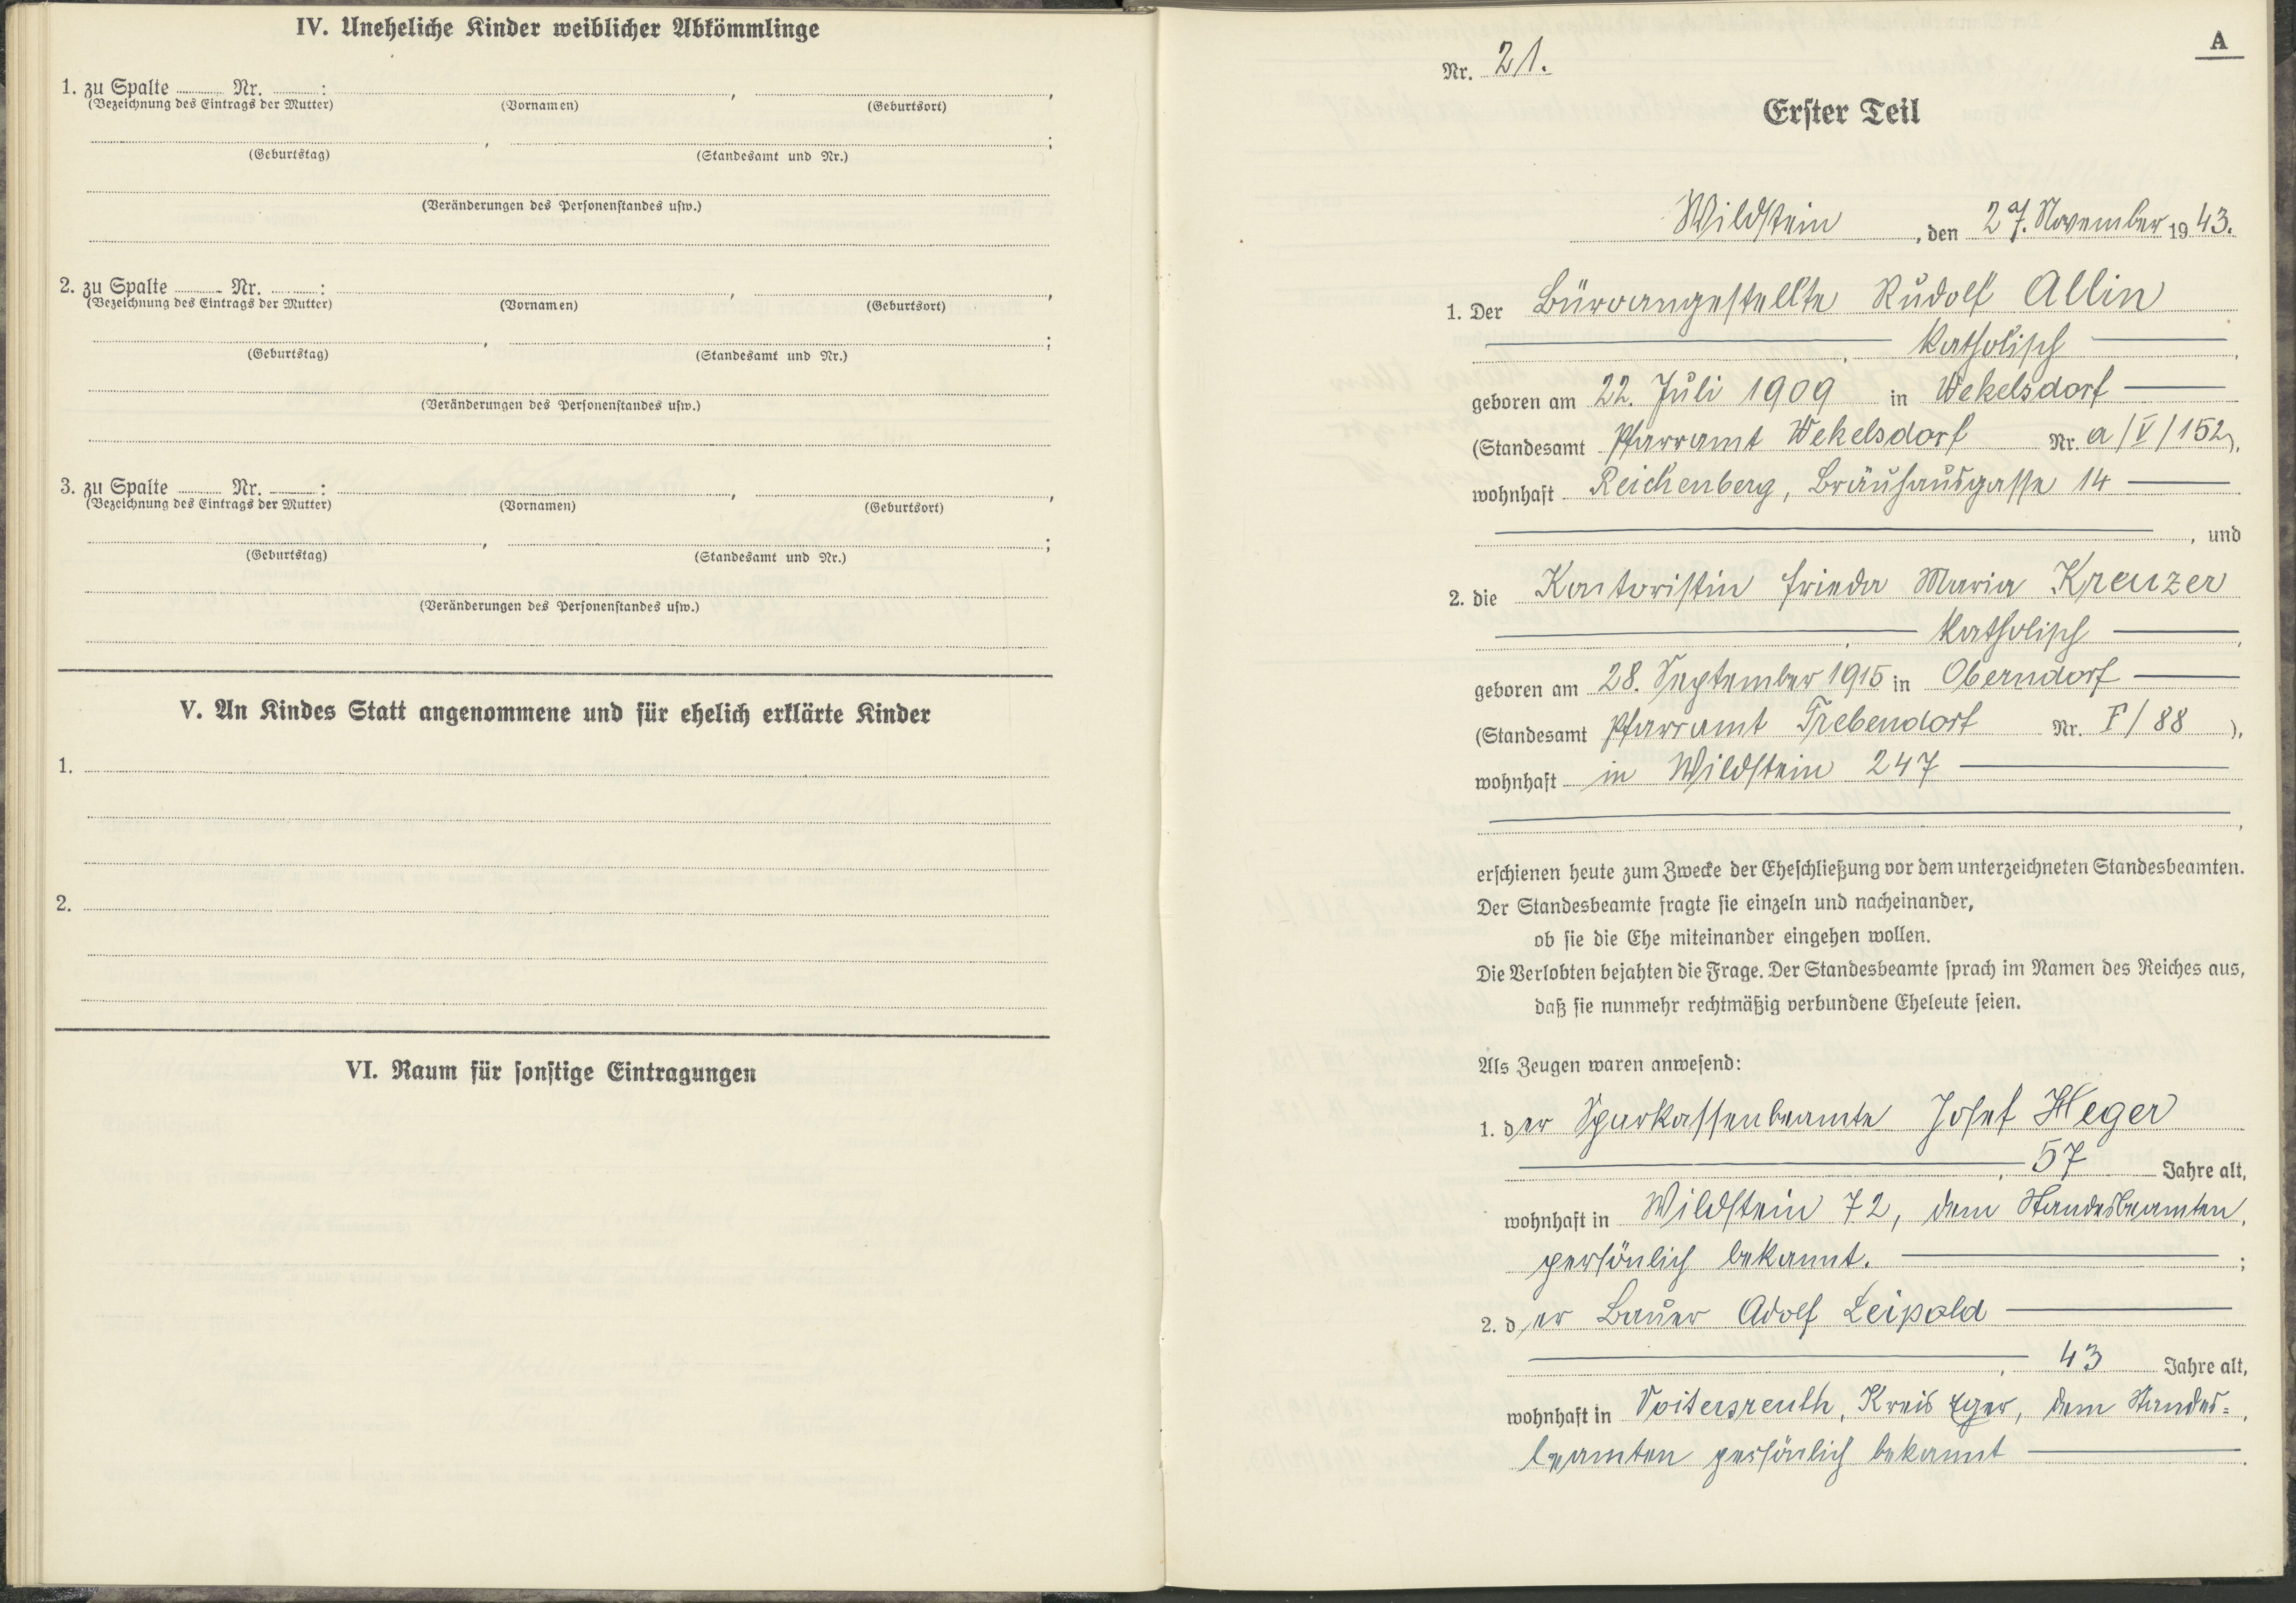 IV. Uneheliche Kinder weiblicher Abkömmlinge
1. zu Spalte ........ Nr. ........: ........, ........,
(Bezeichnung des Eintrags der Mutter) (Vornamen) (Geburtsort)
........, ........;
(Geburtstag) (Standesamt und Nr.)
(Veränderungen des Personenstandes usw.)
2. zu Spalte ........ Nr. ........: ........, ........,
(Bezeichnung des Eintrags der Mutter) (Vornamen) (Geburtsort)
........, ........;
(Geburtstag) (Standesamt und Nr.)
(Veränderungen des Personenstandes usw.)
3. zu Spalte ........ Nr. ........: ........, ........,
(Bezeichnung des Eintrags der Mutter) (Vornamen) (Geburtsort)
........, ........;
(Geburtstag) (Standesamt und Nr.)
(Veränderungen des Personenstandes usw.)
V. An Kindes Statt angenommene und für ehelich erklärte Kinder
1.
2.
VI. Raum für sonstige Eintragungen
A
Nr. 21.
Erster Teil
Wildstein, den 27. November 1943.
1. Der Büroangestellte Rudolf Allin
, katholisch,
geboren am 22. Juli 1909 in Wekelsdorf
(Standesamt Pfarramt Wekelsdorf Nr. a/V/152),
wohnhaft Reichenberg, Bräuhausgasse 14
, und
2. die Kontoristin Frieda Maria Kreuzer
, katholisch,
geboren am 28. September 1915 in Oberndorf
(Standesamt Pfarramt Trebendorf Nr. F/88),
wohnhaft in Wildstein 247
,
erschienen heute zum Zwecke der Eheschließung vor dem unterzeichneten Standesbeamten.
Der Standesbeamte fragte sie einzeln und nacheinander,
ob sie die Ehe miteinander eingehen wollen.
Die Verlobten bejahten die Frage. Der Standesbeamte sprach im Namen des Reiches aus,
daß sie nunmehr rechtmäßig verbundene Eheleute seien.
Als Zeugen waren anwesend:
1. der Sparkassenbeamte Josef Heger
, 57 Jahre alt,
wohnhaft in Wildstein 72, dem Standesbeamten,
persönlich bekannt. ;
2. der Bauer Adolf Leipold
, 43 Jahre alt,
wohnhaft in Voitersreuth, Kreis Eger, dem Standes=,
beamten persönlich bekannt .